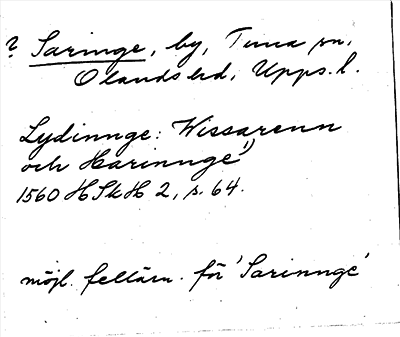 ? Saringe, by, Tuna sn,
Olands hd, Upps. l.
Lydinnge: Wissarenn
och Harinnge¹⁾
1560 HSkH 2, s. 64.
möjl. felläsn. för 'Sarinnge'